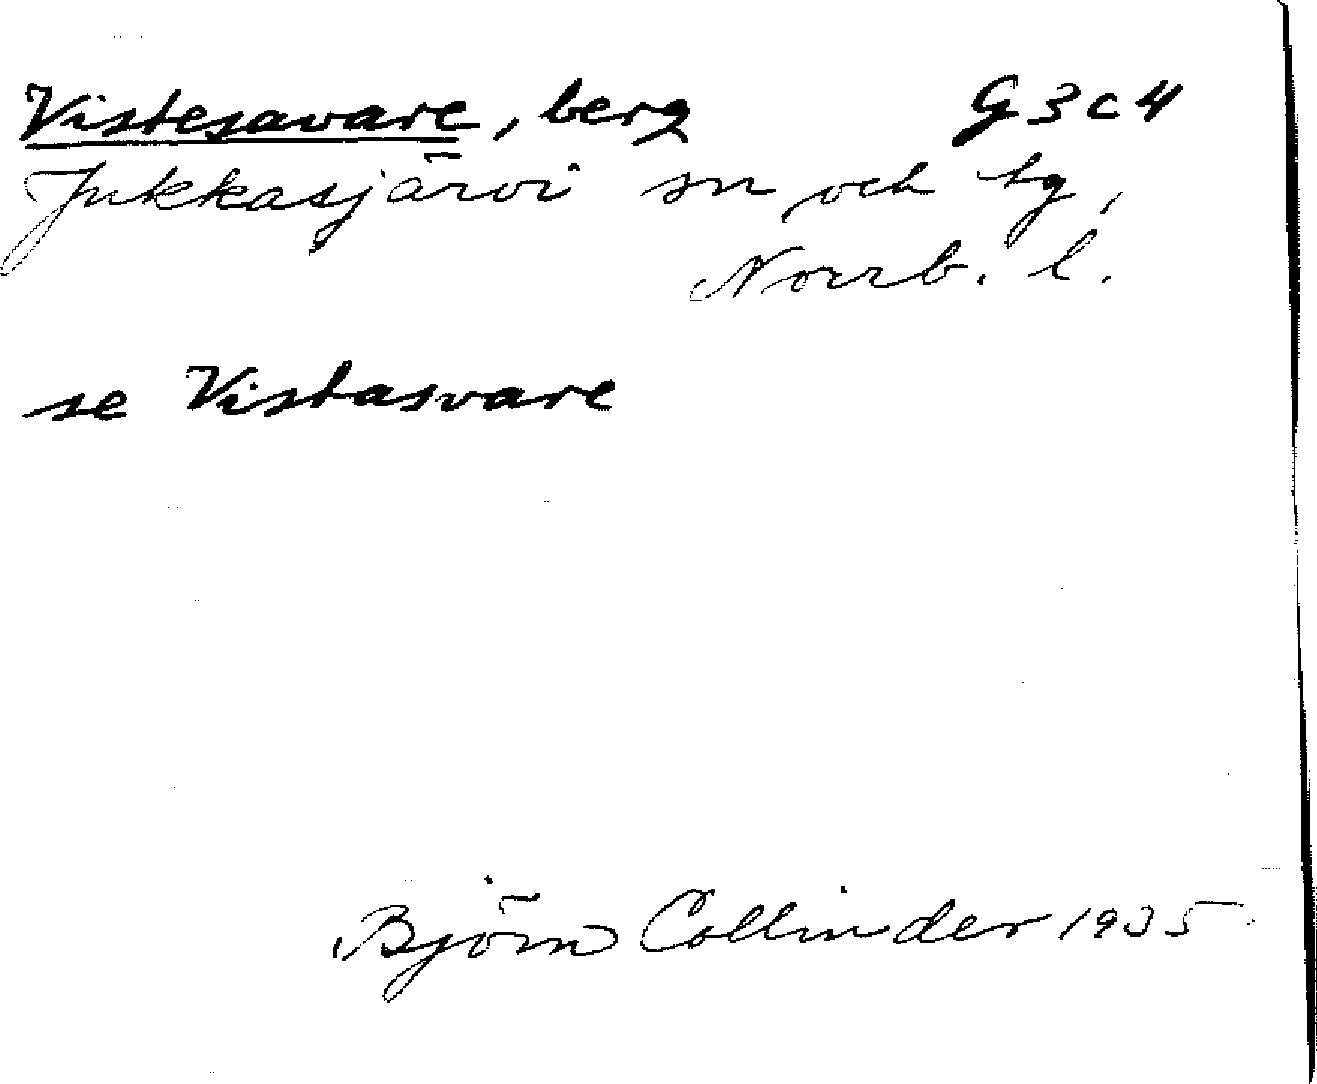 Vistesavare, berg G3c4
Jukkasjärvi sn och tg,
Norrb. l.
se Vistasvare
Björn Collinder 1935